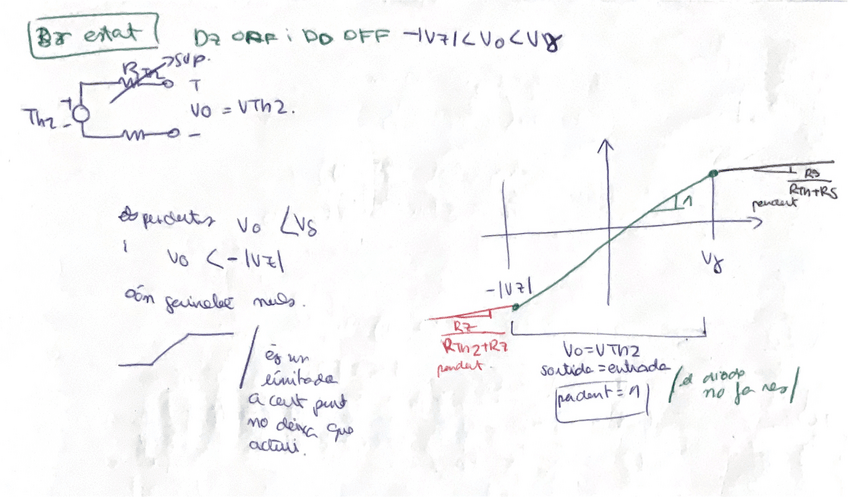 3r estat
Dz OFF i Do OFF -|Vz|<Vo<Vγ
RTh2 → sup.
+
Th2
-
Vo = VTh2.
-
pendents Vo <Vγ
i Vo <-|Vz|
són gairebé nuls.
és un
limitador
a cert punt
no deixa que
actuï.
1
Rs
RTh+Rs
pendent
Vγ
-|Vz|
Rz
RTh2+Rz
pendent.
Vo=VTh2
sortida=entrada
pendent=1
/el díode
no fa res/